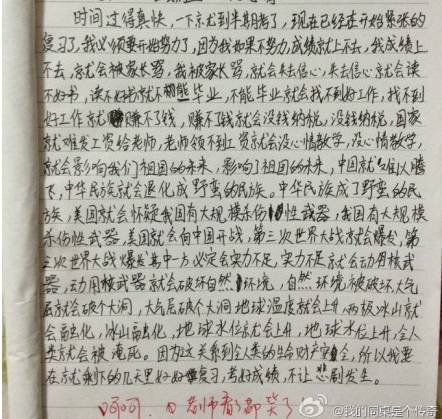 时间过得真快，一下就到半期考了，现在已经在开始紧张的
复习了，我必须要开始努力了，因为我如果不努力，成绩就上不去，我成绩上
不去，就会被家长骂，我被家长骂，就会失去信心，失去信心就会读
不好书，读不好书就不能毕业，不能毕业就会找不到好工作，找不到
好工作就赚不了钱，赚不了钱就会没钱纳税，没钱纳税，国家
就难发工资给老师，老师领不到工资就会没心情教学，没心情教学，
就会影响我们祖国的未来，影响了祖国的未来，中国就难以腾
飞，中华民族就会退化成野蛮的民族。中华民族成了野蛮的民
族，美国就会怀疑我国有大规模杀伤性武器，我国有大规模
杀伤性武器，美国就会向中国开战，第三次世界大战就会爆发，第
三次世界大战爆发其中一方必定会实力不足，实力不足就会动用核武
器，动用核武器就会破坏自然环境，自然环境被破坏大气
层就会破个大洞，大气层破个大洞地球温度就会上升，两极冰山就
会融化，冰山融化，地球水位就会上升，地球水位上升，全人
类就会被淹死。因为这关系到全人类的生命财产安全，所以我要
在就剩下的几天里好好复习，考好成绩，不让悲剧发生。
呵呵，都笑了
@我的同桌是个传奇